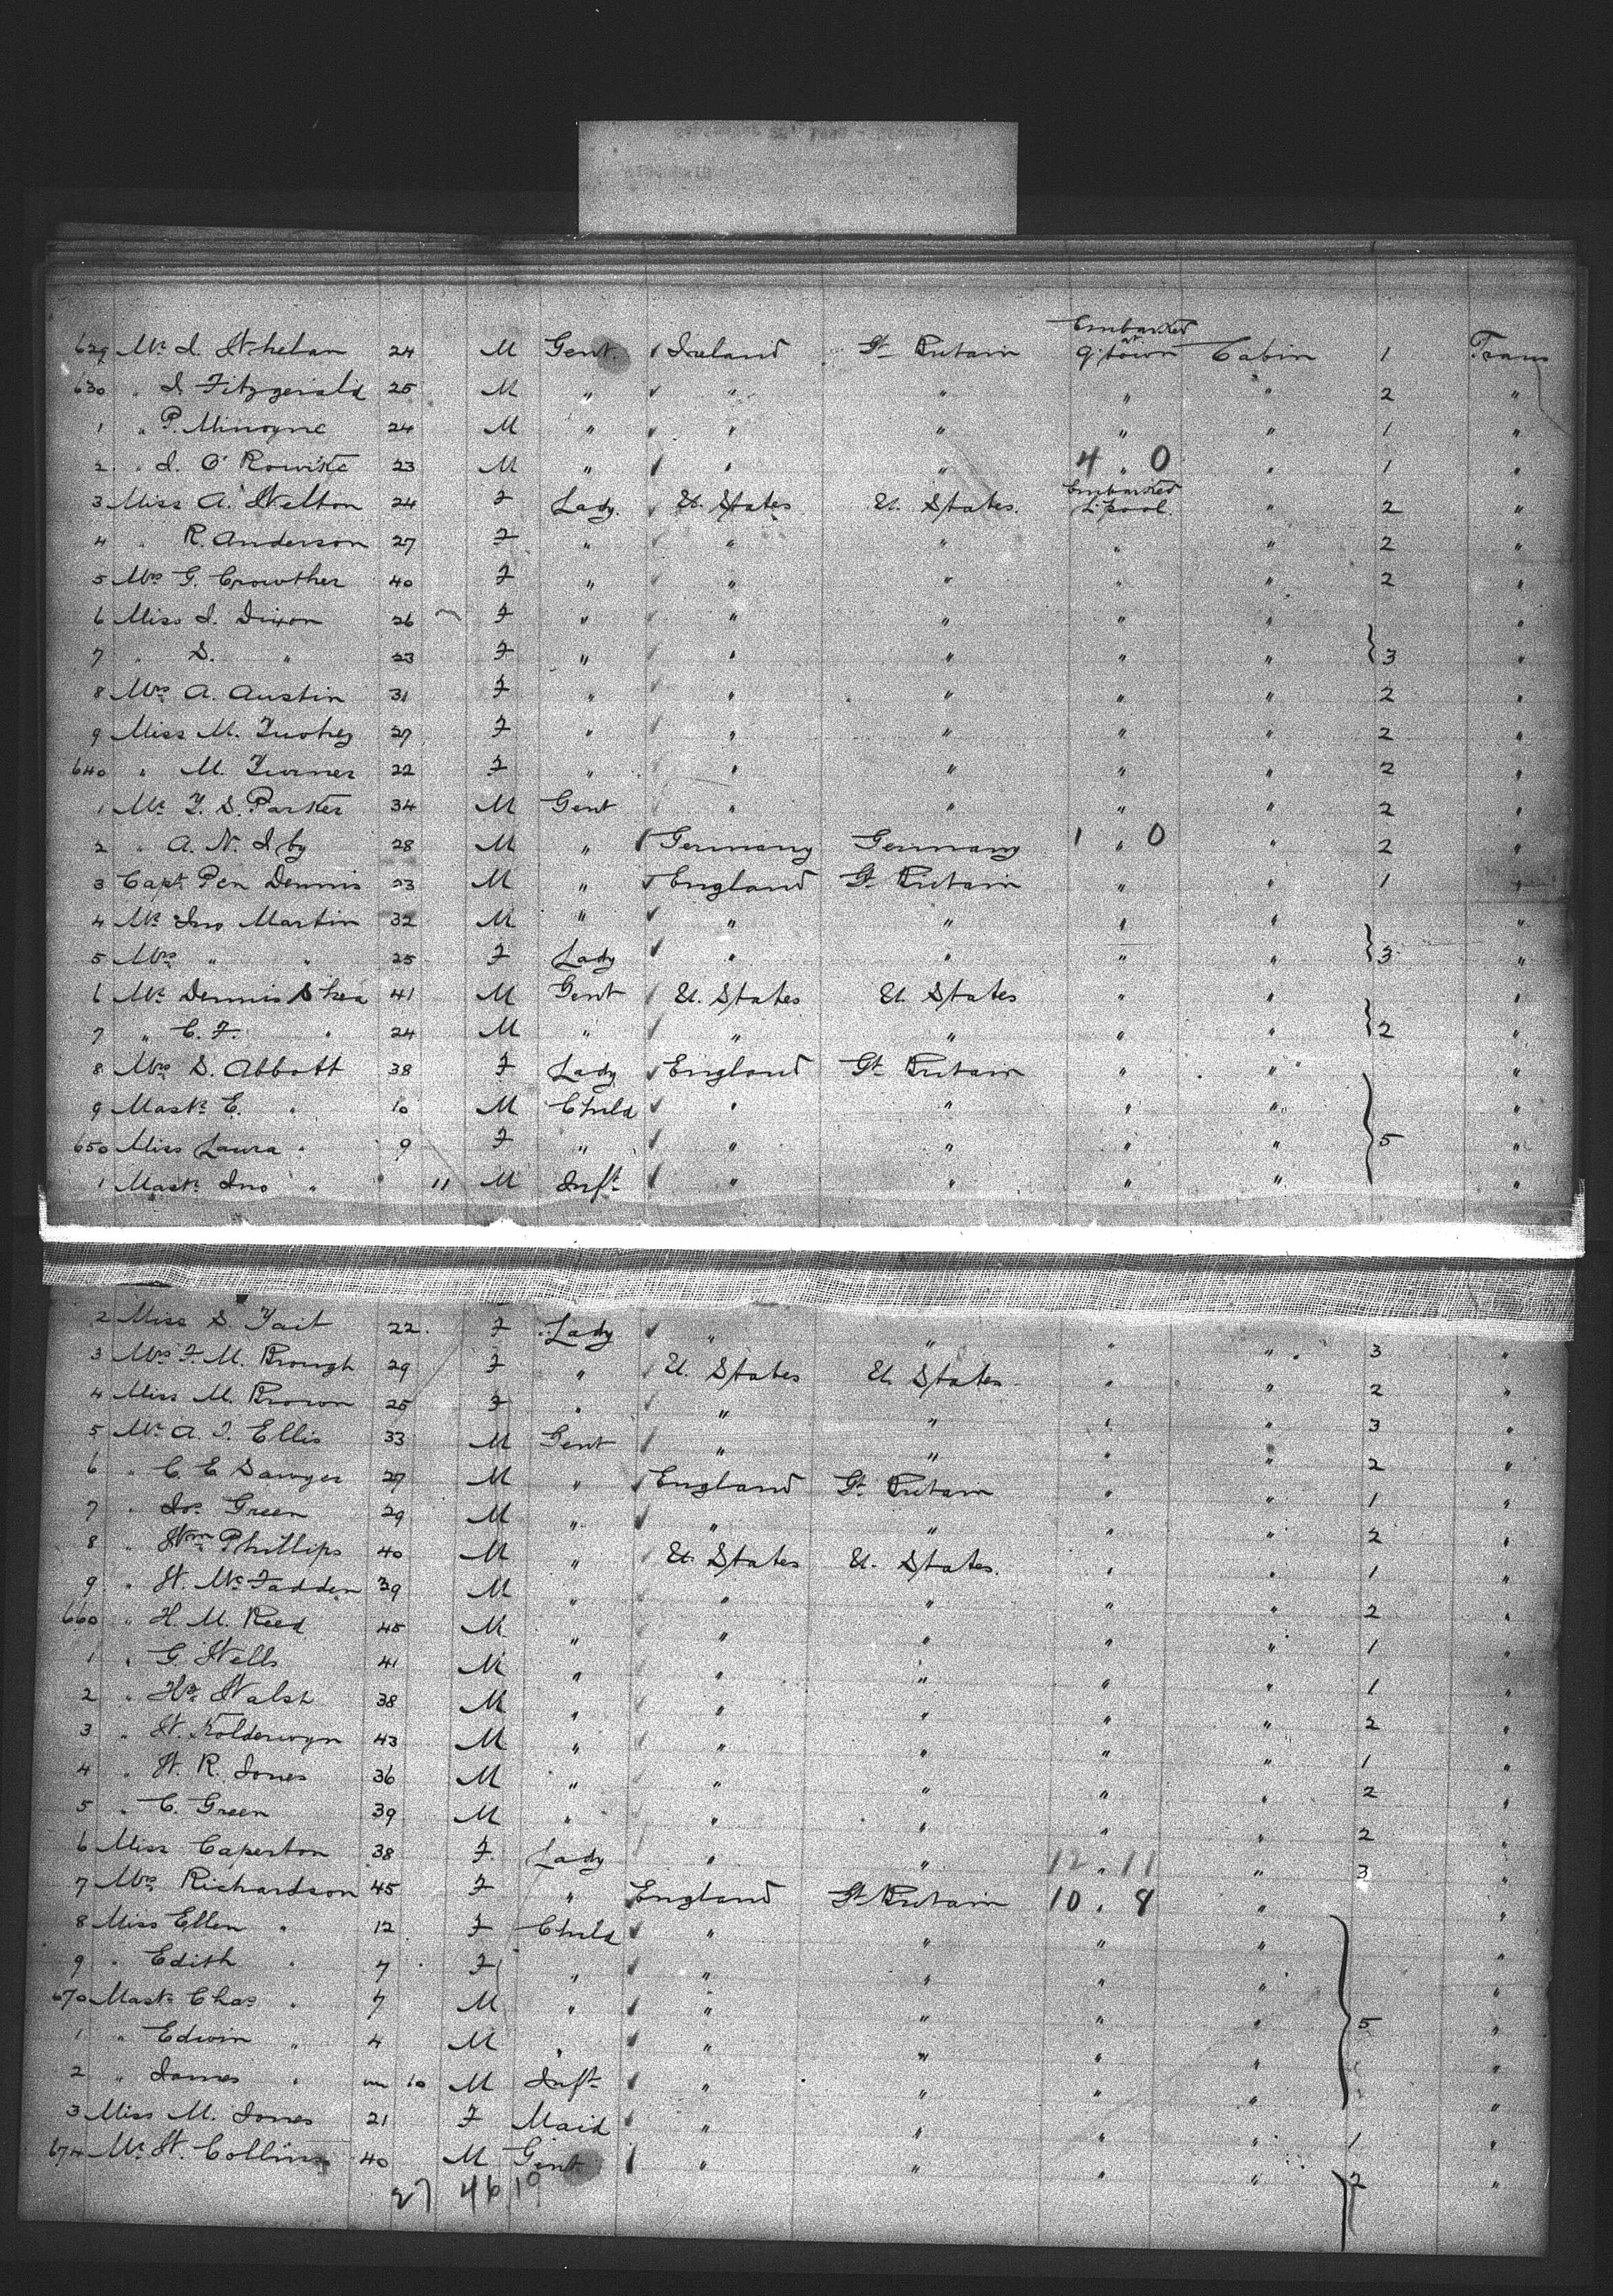 629 Mr. J. Whelan 24 M Gent. Ireland Gt. Britain Embarked at Q'town Cabin 1 Trans
630 " J. Fitzgerald 25 M " " " " " 2 "
1 " P. Minogue 24 M " " " " " 1 "
2 " J. O' 23 M " " " 4 " 0 " 1 "
3 Miss A. Welton 24 F Lady. U. States U. States. Embarked L'pool. " 2 "
4 " R. Anderson 27 F " " " " " 2 "
5 Mrs G. Crowther 40 F " " " " " 2 "
6 Miss J. Dixon 26 F " " " " " "
7 " S. " 23 F " " " " " 3 "
8 Mrs A. Austin 31 F " " " " " 2 "
9 Miss M. 27 F " " " " " 2 "
640 " M. Turner 22 F " " " " " 2 "
1 Mr. T. S. Parker 34 M Gent " " " " 2 "
2 " A. N. 28 M " Germany Germany 1 " 0 " 2 "
3 Capt. Pen Dennis 33 M " England Gt. Britain " " 1 "
4 Mr Jno Martin 32 M " " " " " "
5 Mrs " " 25 F Lady " " " " 3 "
6 Mr. Dennis Shea 41 M Gent U. States U. States " " "
7 " C. F. " 24 M " " " " " 2 "
8 Mrs S. Abbott 38 F Lady England Gt. Britain " " "
9 Mastr E. " 10 M Child " " " " "
650 Miss Laura " 9 F " " " " " 5 "
1 Mastr Jno " 11 M Inft. " " " " "
2 Miss S. Tait 22. F Lady " " " " 3 "
3 Mrs F. M. Brough 29 F " U. States U. States " " 2 "
4 Miss M. Brown 25 F " " " " " 3 "
5 Mr A. J. Ellis 33 M Gent " " " " 2 "
6 " C. E. Sawyer 27 M " England Gt. Britain " " 1 "
7 " Jos. Green 29 M " " " " " 2 "
8 " Wm Phillips 40 M " U. States U. States. " " 1 "
9 " W. McFadden 39 M " " " " " 2 "
660 " H. M. Reed 45 M " " " " " 1 "
1 " G. Wells 41 M " " " " " 1 "
2 " Walsh 38 M " " " " " 2 "
3 " W. 43 M " " " " " 1 "
4 " W. R. Jones 36 M " " " " " 2 "
5 " C. Green 39 M " " " " " 2 "
6 Miss Caperton 38 F. Lady " " 12 " 11 " 3 "
7 Mrs Richardson 45 F " England Gt. Britain 10 " 8 " "
8 Miss Ellen " 12 F Child " " " " "
9 " Edith " 7 F " " " " " "
670 Mastr Chas " 7 M " " " " " 5 "
1 " Edwin " 4 M " " " " " "
2 " James " 10 M Inft. " " " " "
3 Miss M. Jones 21 F Maid " " " " 1 "
674 Mr. W. Collins 40 M Gent " " " " 2 "
27 46 19